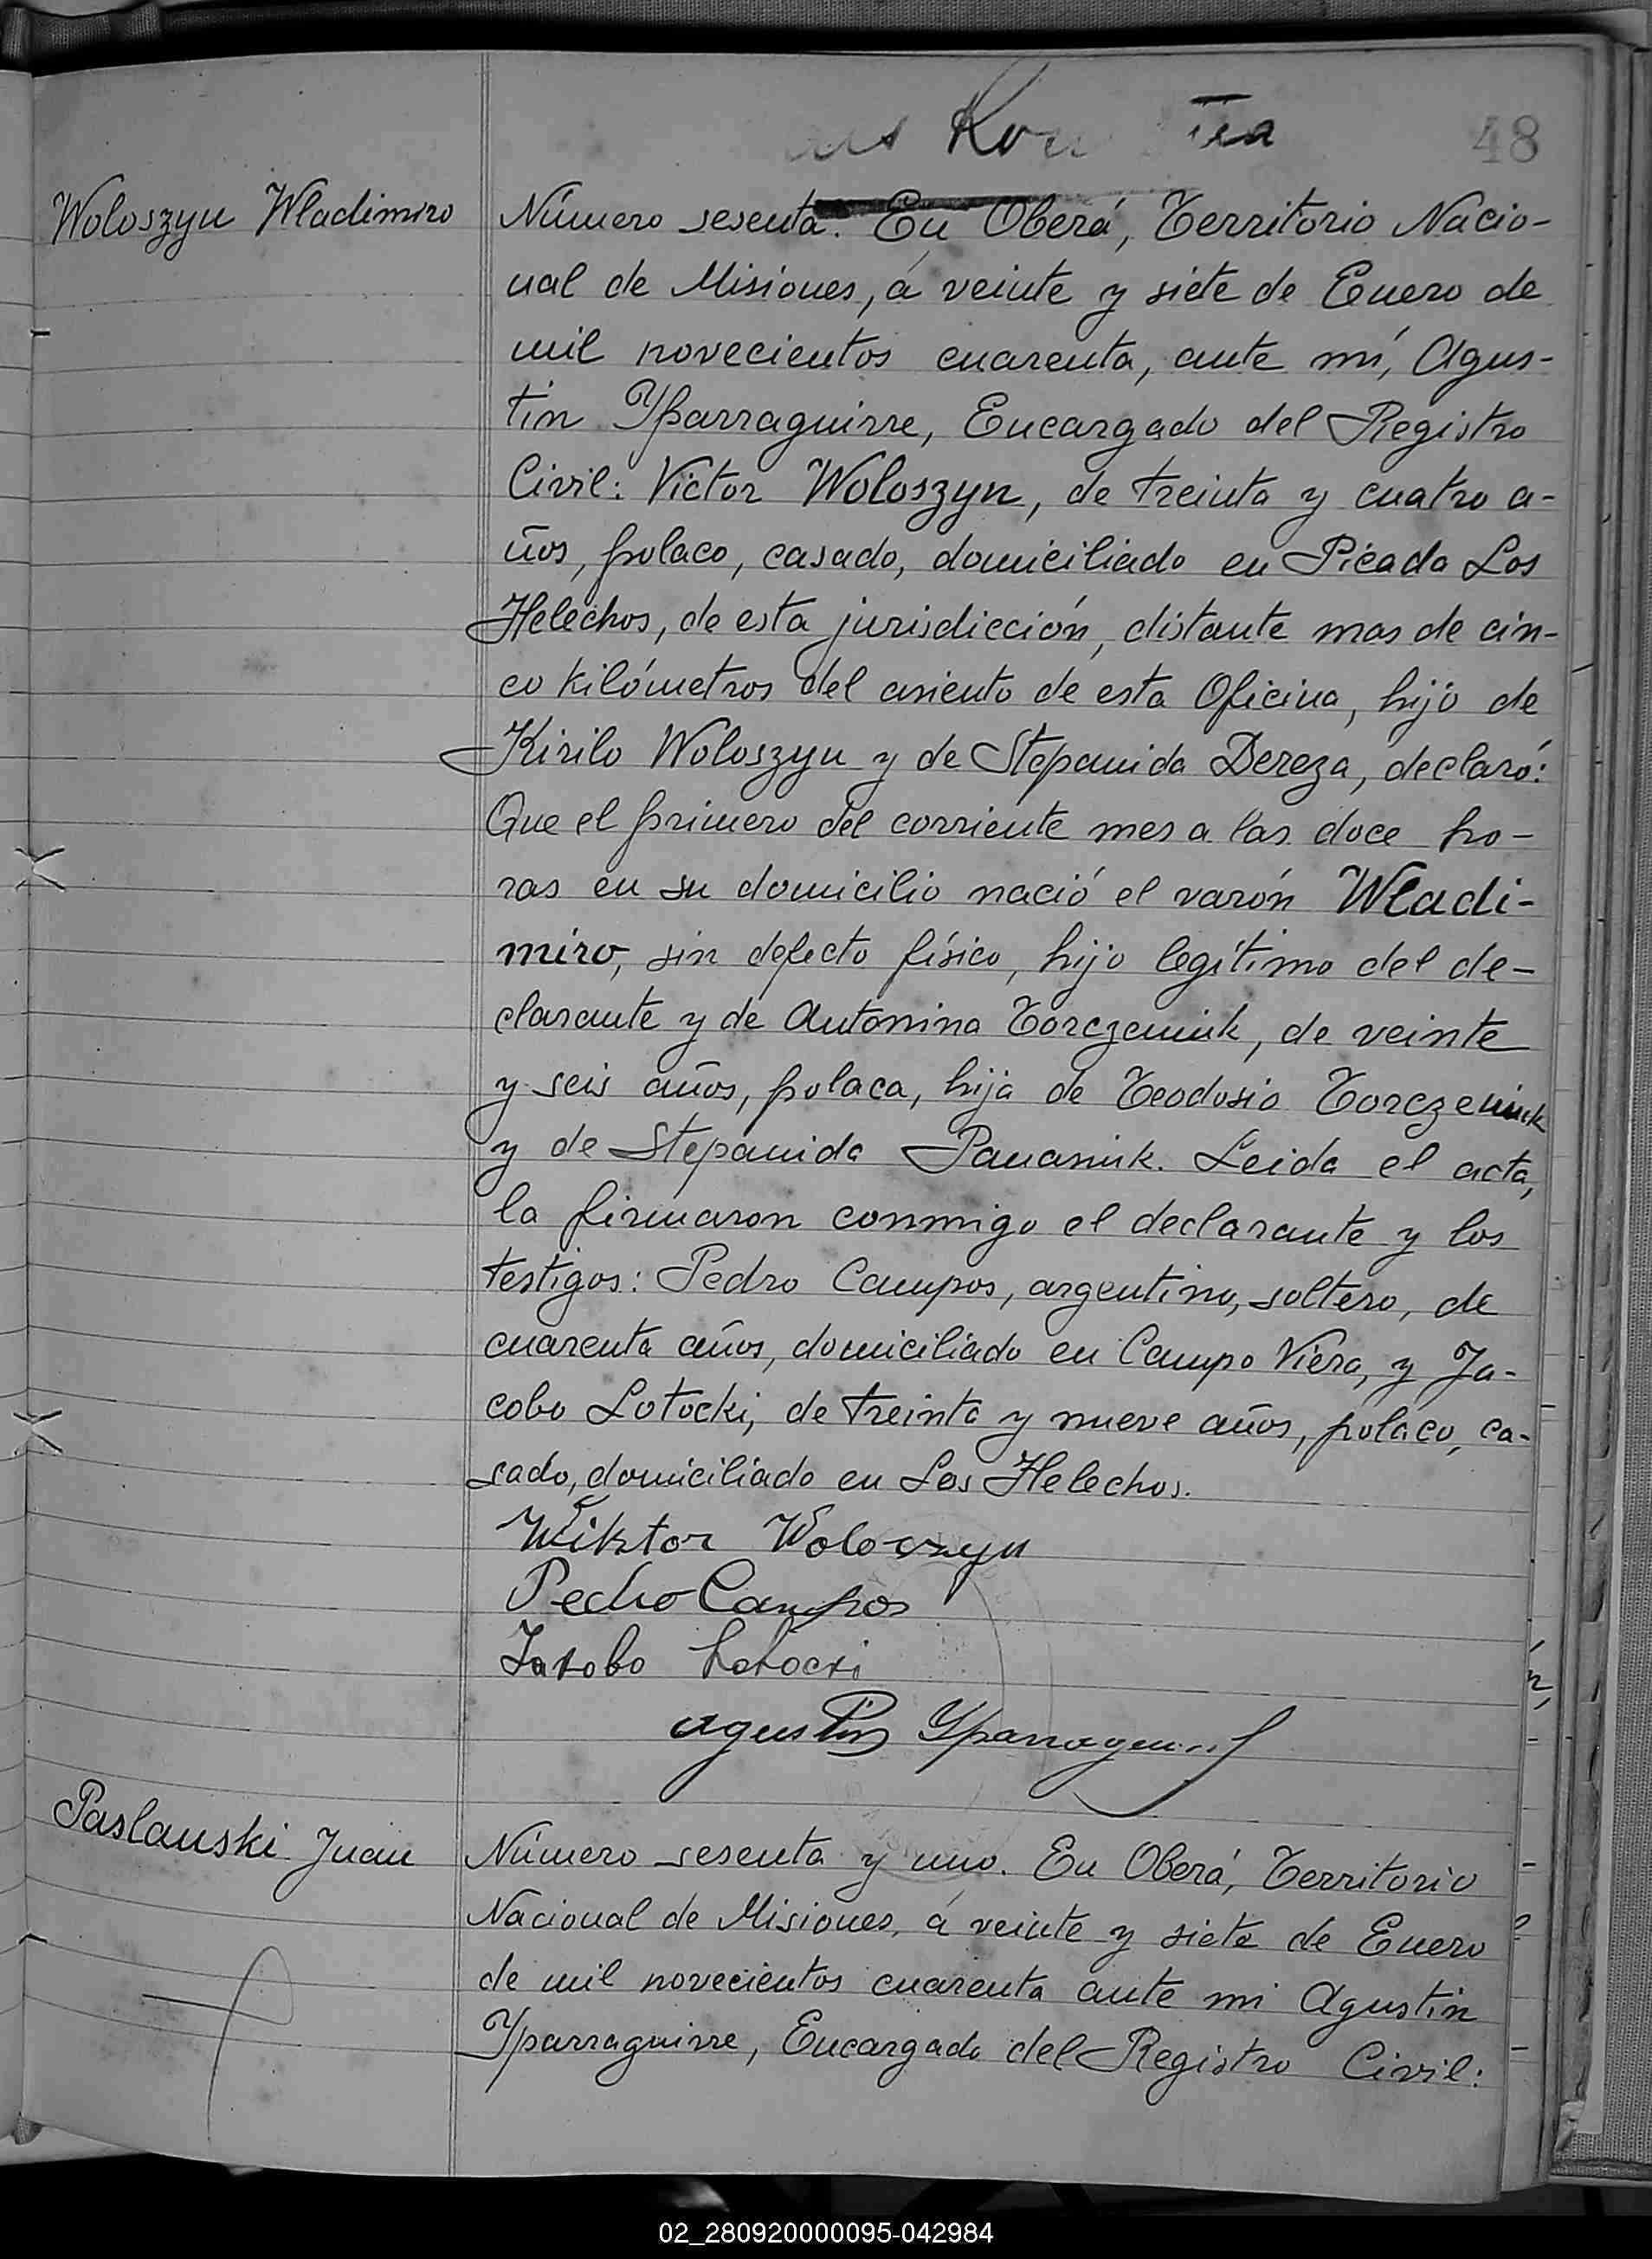 48
Woloszyn Wladimiro
Número sesenta. En Oberá, Territorio Nacio-
nal de Misiones, á veinte y siete de Enero de
mil novecientos cuarenta, ante mí, Agus-
tin Yparraguirre, Encargado del Registro
Civil: Victor Woloszyn, de treinta y cuatro a-
ños, polaco, casado, domiciliado en Picada Los
Helechos, de esta jurisdicción, distante mas de cin-
co kilómetros del asiento de esta Oficina, hijo de
Kirilo Woloszyn y de Stepanida Dereza, declaró:
Que el primero del corriente mes a las doce ho-
ras en su domicilio nació el varón Wladi-
miro, sin defecto físico, hijo legítimo del de-
clarante y de Antonina Torczeniuk, de veinte
y seis años, polaca, hija de Teodosio Torczeniuk
y de Stepanida Panasiuk. Leida el acta,
la firmaron conmigo el declarante y los
testigos: Pedro Campos, argentino, soltero, de
cuarenta años, domiciliado en Campo Viera, y Ja-
cobo Lotocki, de treinta y nueve años, polaco, ca-
sado, domiciliado en Los Helechos.
Wiktor Woloszyn
Pedro Campos
Jakobo Lotocki
Agustin Yparraguirre
Paslauski Juan
Número sesenta y uno. En Oberá, Territorio
Nacional de Misiones, á veinte y siete de Enero
de mil novecientos cuarenta ante mi Agustin
Yparraguirre, Encargado del Registro Civil:
02_280920000095-042984